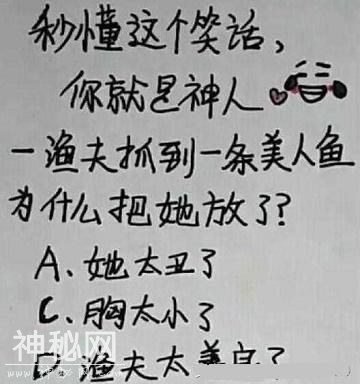 秒懂这个笑话，
你就是神人
一渔夫抓到一条美人鱼
为什么把她放了?
A、她太丑了
C、胸太小了
渔夫太善良了
神秘网